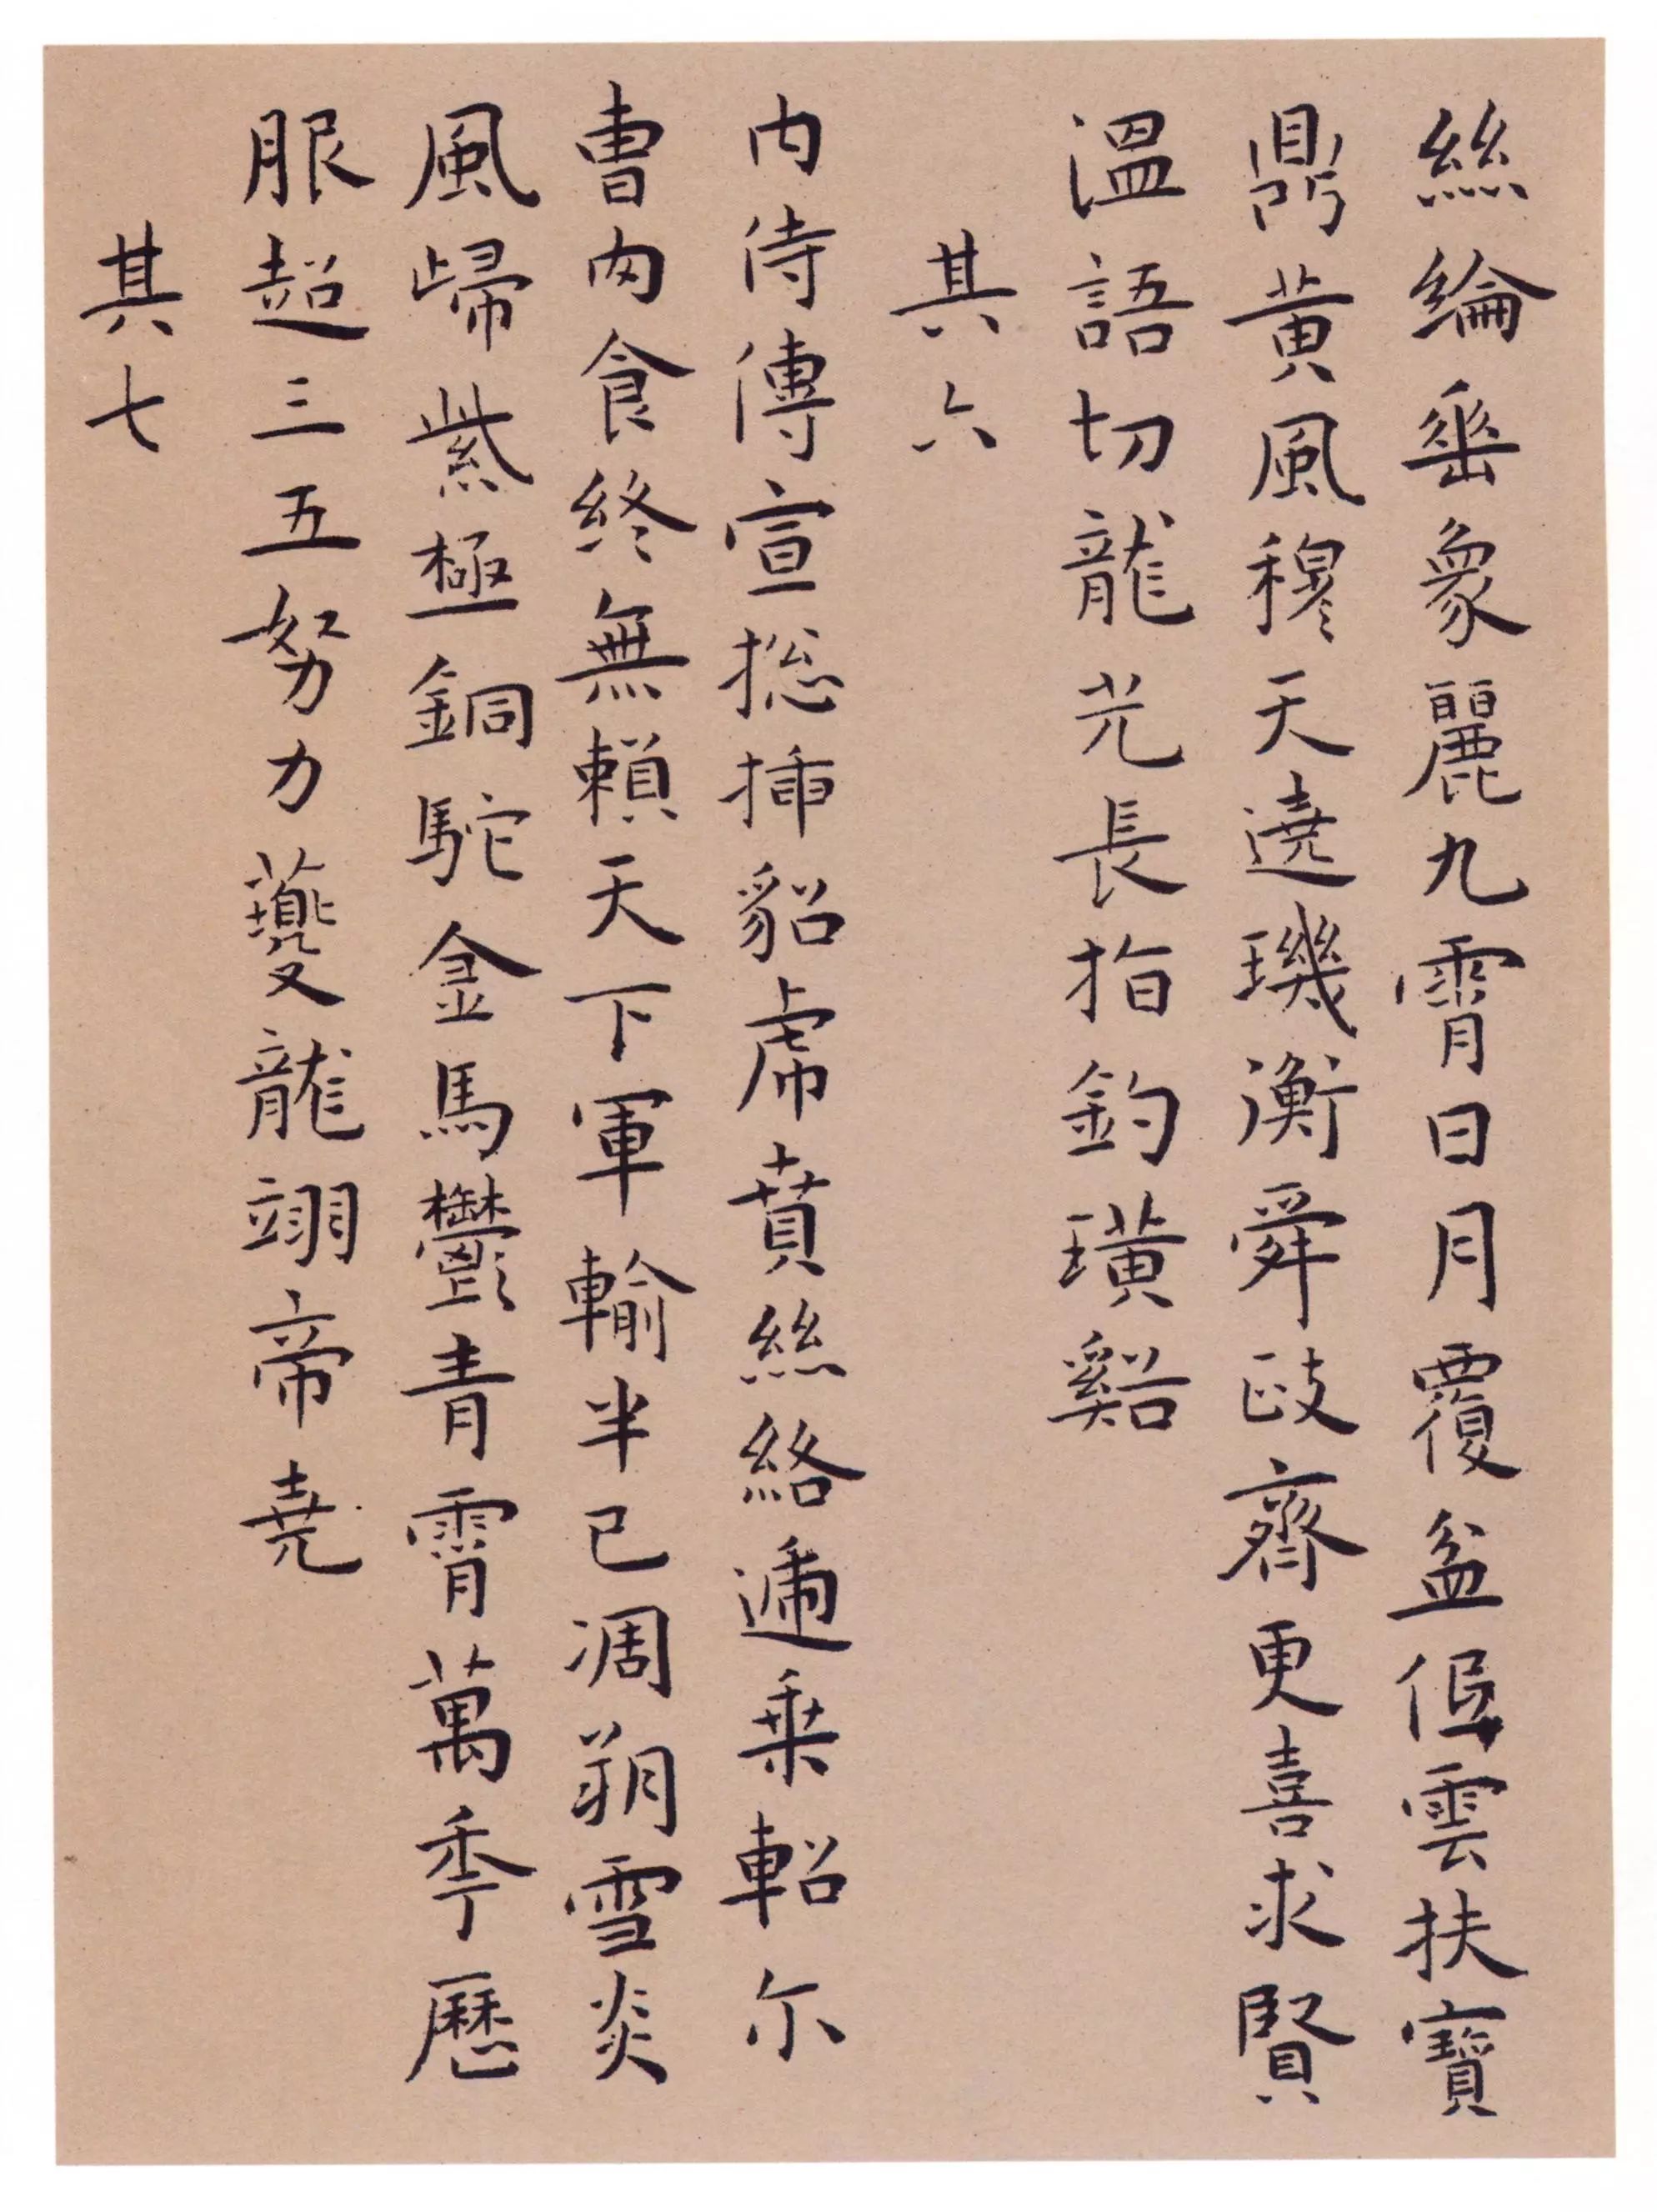 絲綸垂象麗九霄日月覆盆低雲扶寶
鼎黃風穆天遶璣衡舜政齊更喜求賢
溫語切龍光長指釣璜谿
其六
內侍傳宣捴插貂虎賁絲絡遞乘軺尔
曹肉食終無賴天下軍輸半已凋朔雪炎
風歸紫極銅駝金馬鬱青霄萬秊歷
服超三五努力夔龍翊帝堯
其七